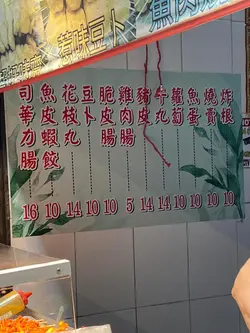 味豆卜
魚肉
司華力腸
魚皮蝦餃
花枝丸
豆卜
脆皮腸
雞肉腸
豬皮
牛丸
蘿蔔
魚蛋
燒賣
炸根
16 10 14 10 10 5 14 14 10 10 10